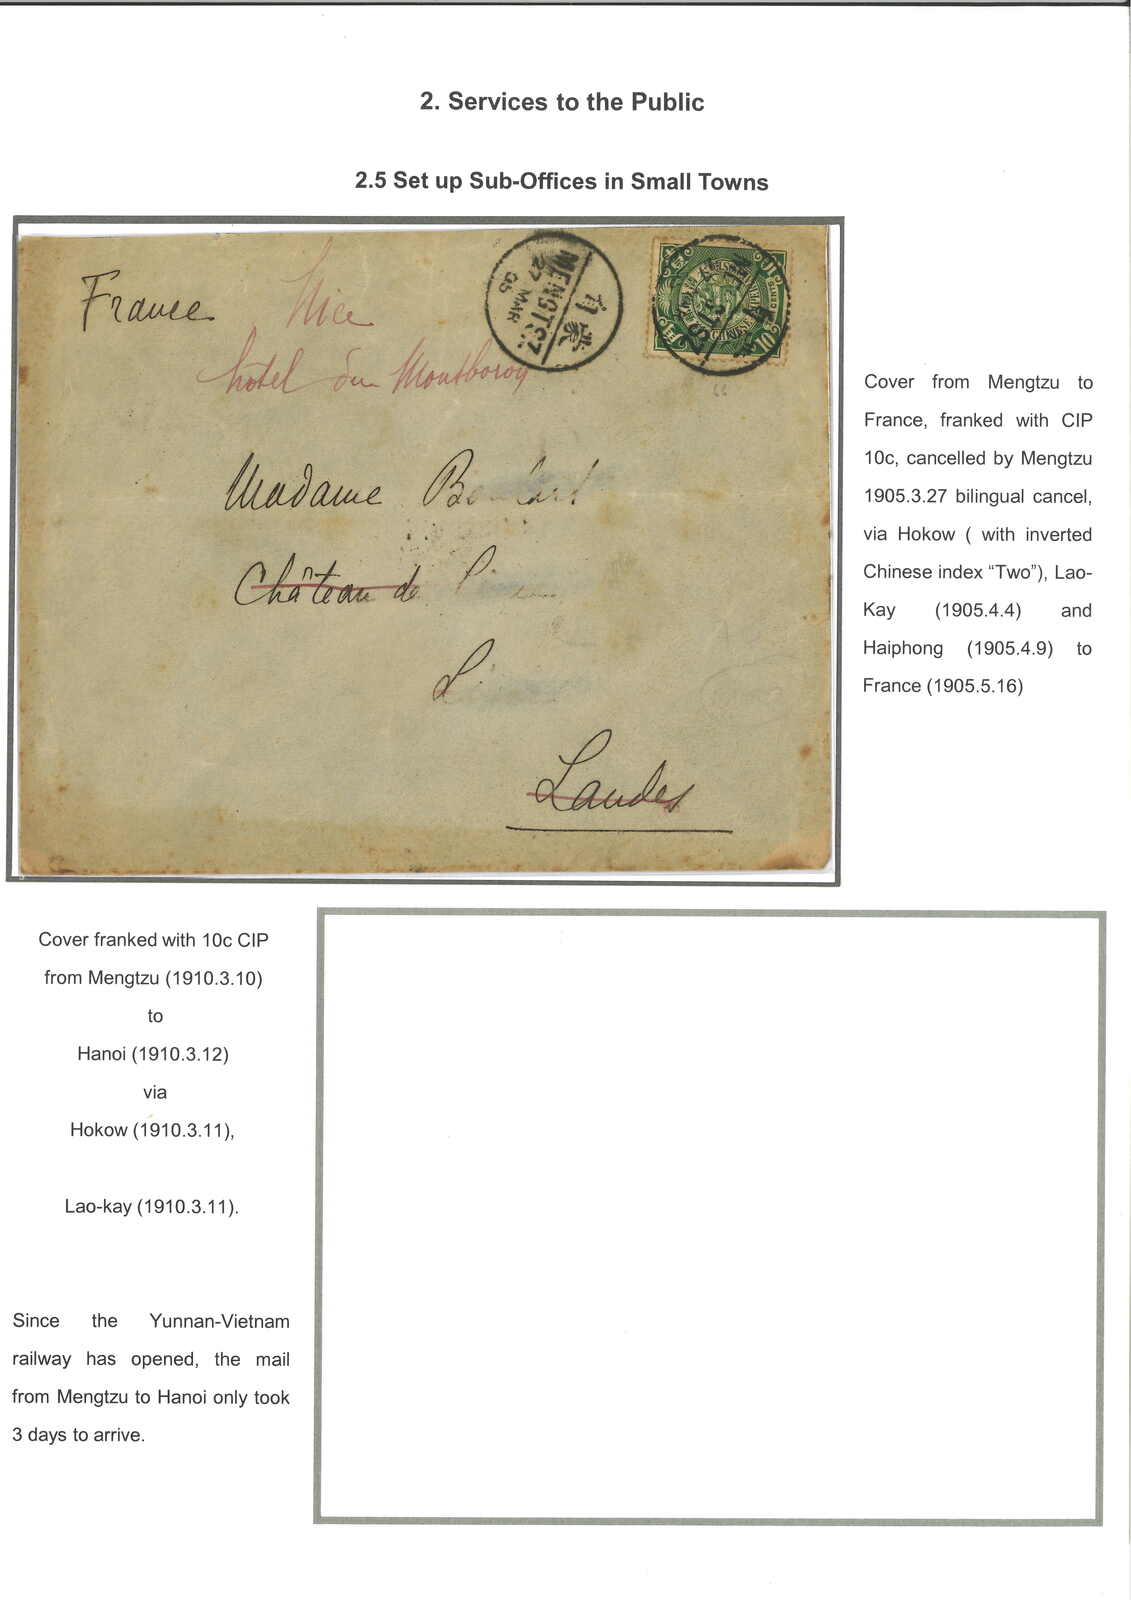 2. Services to the Public
2.5 Set up Sub-Offices in Small Towns
France
Nice
hôtel du Montboron
蒙自
MENGTSZ
27 MAR
05
10
Madame
Château de
L
Landes
Cover from Mengtzu to
France, franked with CIP
10c, cancelled by Mengtzu
1905.3.27 bilingual cancel,
via Hokow ( with inverted
Chinese index “Two”), Lao-
Kay (1905.4.4) and
Haiphong (1905.4.9) to
France (1905.5.16)
Cover franked with 10c CIP
from Mengtzu (1910.3.10)
to
Hanoi (1910.3.12)
via
Hokow (1910.3.11),
Lao-kay (1910.3.11).
Since the Yunnan-Vietnam
railway has opened, the mail
from Mengtzu to Hanoi only took
3 days to arrive.